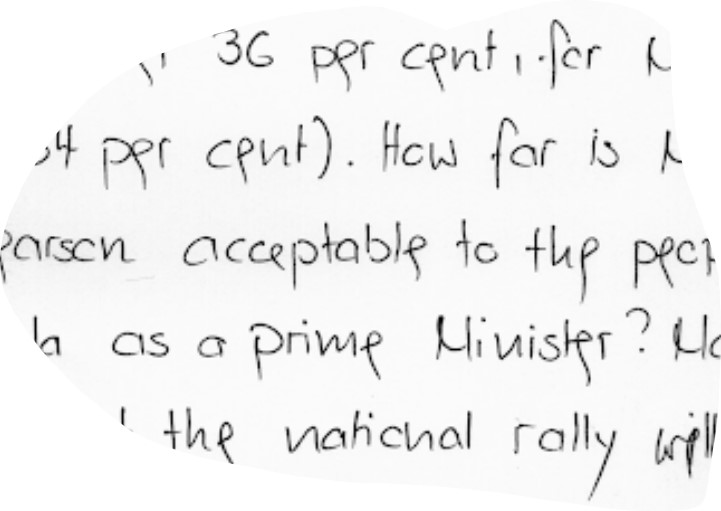 36 per cent, for
per cent). How far is
acceptable to the
as a prime Minister?
the national rally will